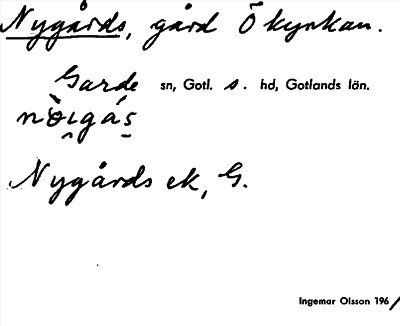 Nygårds, gård Ö kyrkan.
Garde sn, Gotl. s. hd, Gotlands län.
Nygårds ek, G.
Ingemar Olsson 196/